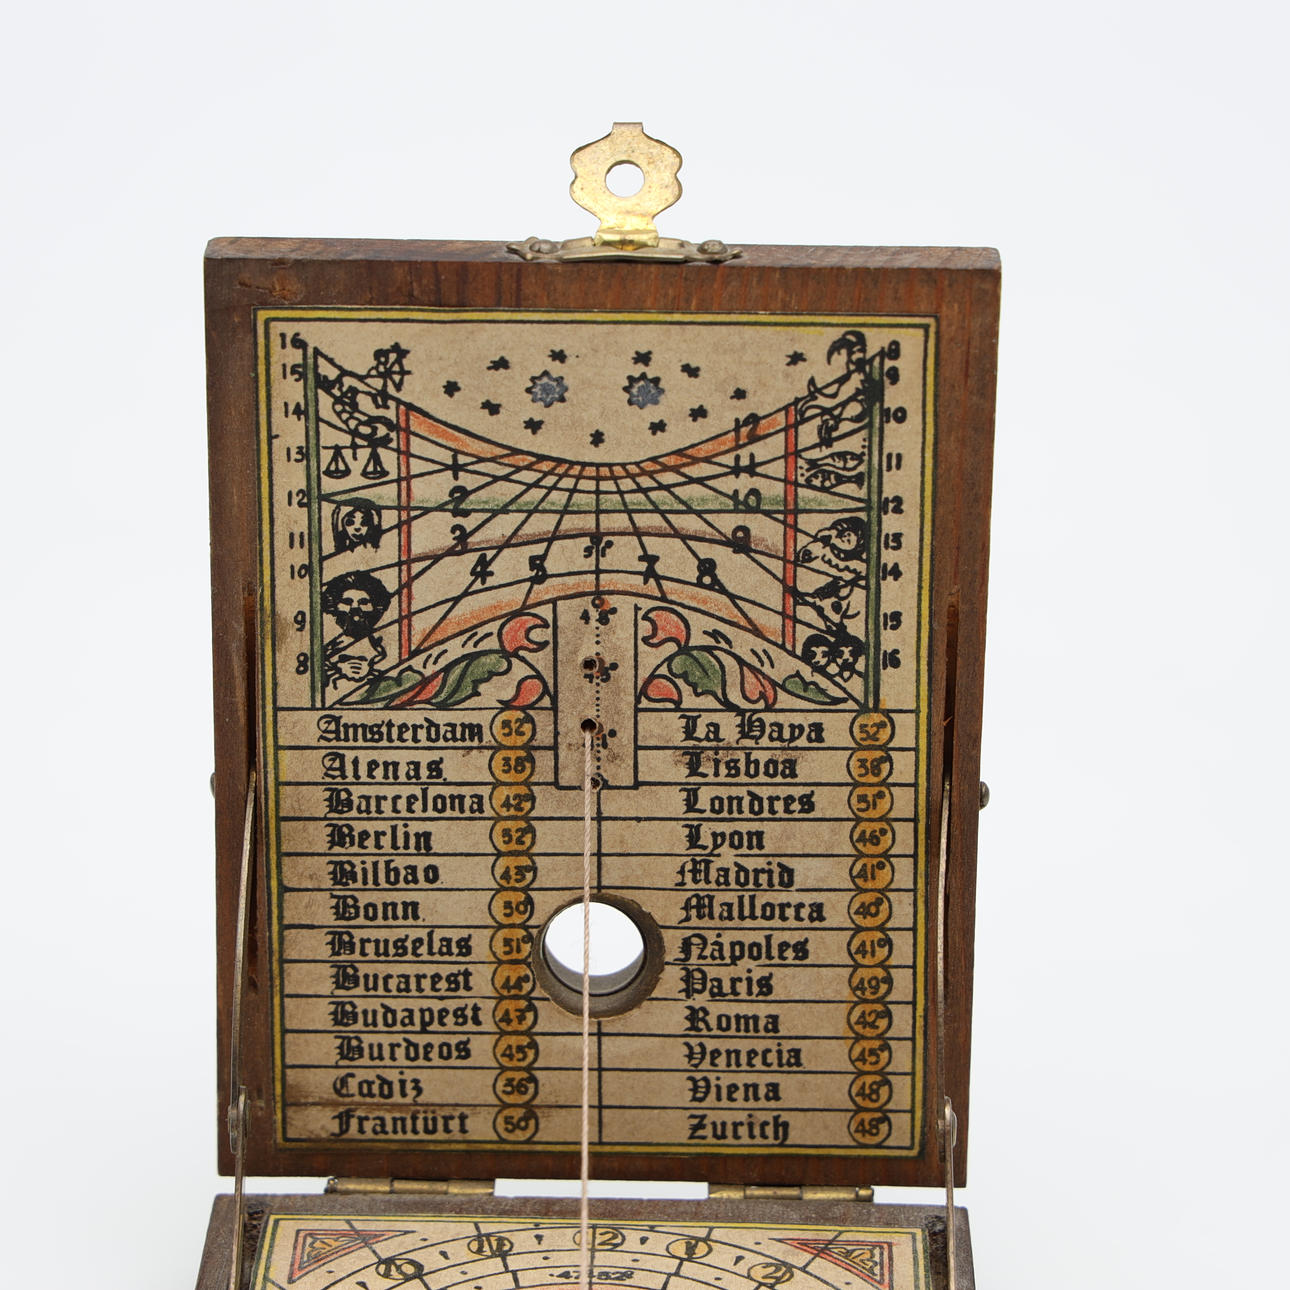 16 8
15 9
14 10
12
13 1 11 11
12 2 10 12
11 3 9 13
10 4 5 7 8 14
9 15
8 16
Amsterdam 52° La Haya 52°
Atenas 38° Lisboa 38°
Barcelona 42° Londres 51°
Berlin 52° Lyon 46°
Bilbao 43° Madrid 41°
Bonn 50° Mallorca 40°
Bruselas 51° Nápoles 41°
Bucarest 44° Paris 49°
Budapest 47° Roma 42°
Burdeos 45° Venecia 45°
Cadiz 36° Viena 48°
Franfürt 50° Zurich 48°
10 11 12 1 2
47-52°